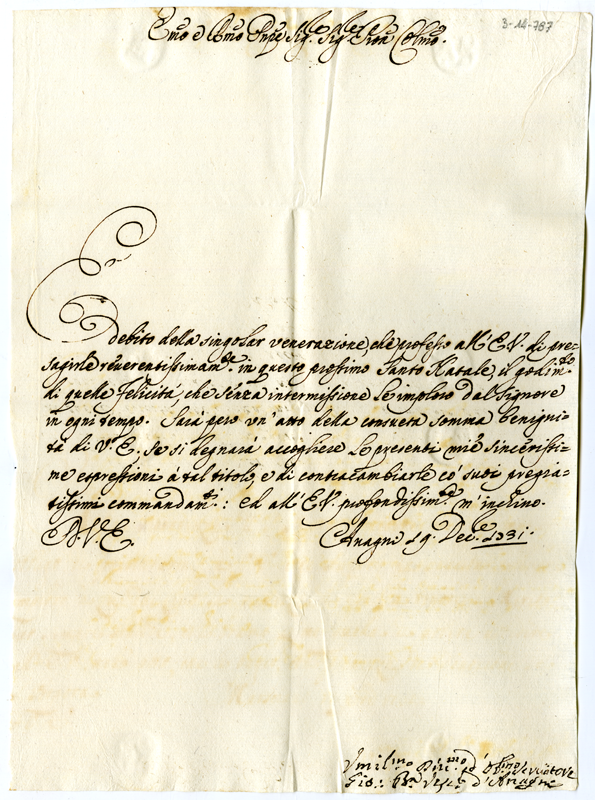 3-14-787
Emo e Rmo Prñpe Sig.e Sig.e Pron Colmo.
È Debito della singolar venerazione, che professo all' E.V. di pre=
sagirle reverentissimam.te in questo prossimo Santo Natale, il godim.to
di quelle felicità, che senza intermissione le imploro dal Signore
in ogni tempo. Sarà però un' atto della consueta somma benigni=
tà di V.E. se si degnarà accogliere le presenti mie sincerissi=
me espressioni à tal titolo, e di contracambiarle co' suoi pregia=
tissimi commandam.ti: ed all' E.V. profondissim.te m' inchino.
D. V. E. Anagni 19. Dec.e 1731.
Umilmo Divmo ed Obmo Servitore
Gio: Ba Vesc.o d'Anagni